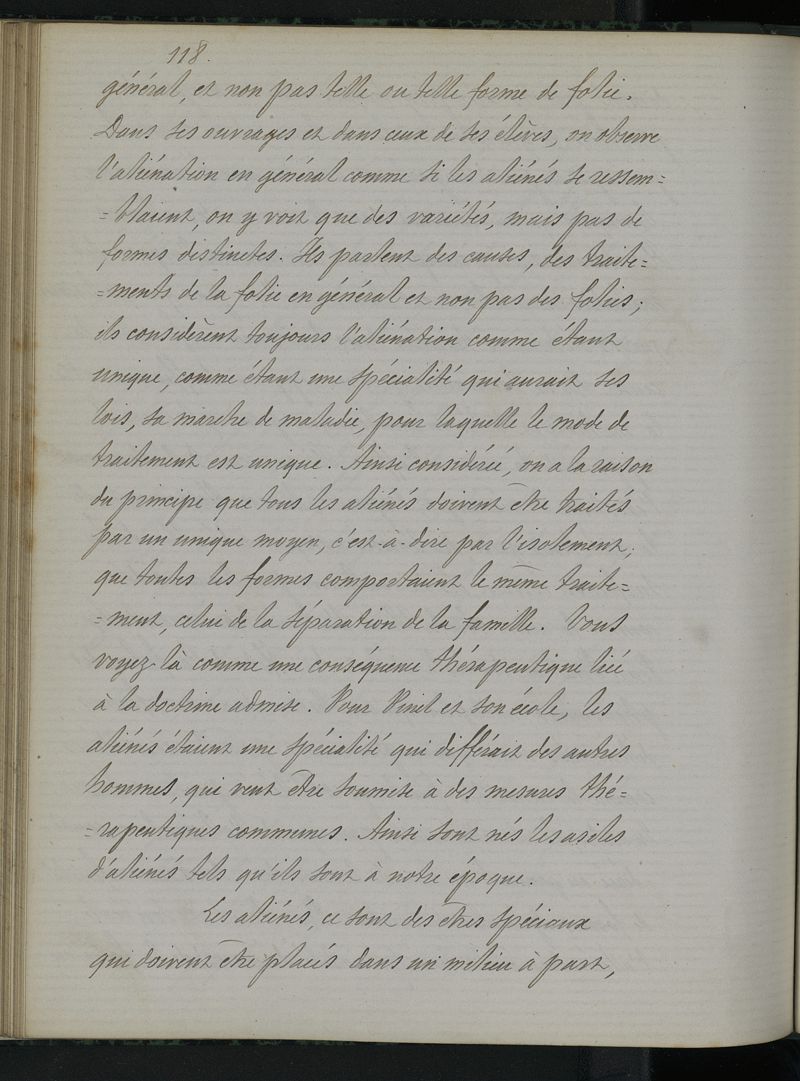 118.
général, et non pas telle ou telle forme de folie.
Dans ses ouvrages et dans ceux de ses élèves, on observe
l'aliénation en général comme si les aliénés se ressem=
=blaient, on y voit que des variétés, mais pas de
formes distinctes. Ils parlent des causes, des traite=
=ments de la folie en général et non pas des folies;
ils considèrent toujours l'aliénation comme étant
unique, comme étant une spécialité qui aurait ses
lois, sa marche de maladie, pour laquelle le mode de
traitement est unique. Ainsi considérée, on a la raison
du principe que tous les aliénés doivent être traités
par un unique moyen, c'est-à-dire par l'isolement;
que toutes les formes comportaient le même traite=
=ment, celui de la séparation de la famille. Vous
voyez-là comme une conséquence thérapeutique liée
à la doctrine admise. Pour Pinel et son école, les
aliénés étaient une spécialité qui différait des autres
hommes, qui veut être soumise à des mesures thé=
=rapeutiques communes. Ainsi sont nés les asiles
d'aliénés tels qu'ils sont à notre époque.
Les aliénés, ce sont des êtres spéciaux
qui doivent être placés dans un milieu à part,